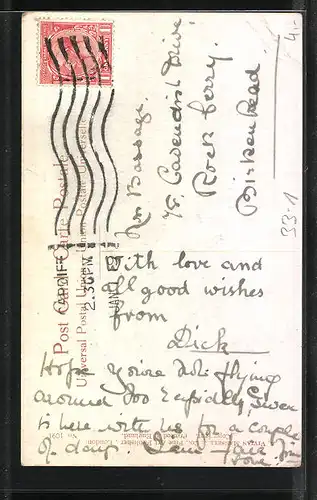 Post Card. Carte Postale
Universal Postal Union. Union Postale Universelle
CARDIFF
2.30PM
JAN
Mrs Bassage.
78 Cavendish Drive
Rock Ferry.
Birkenhead
With love and
all good wishes
from
Dick
Hope you're not flying
around too rapidly, Gwen
is here with us for a couple
of days
love
4.-
33-1
Printed in England.
London
No 1091